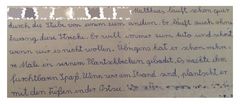 Matthias läuft schon quer
durch die Stube von einem zum andern. Er läuft auch ohne
Zwang diese Strecke. Er will immer zum Auto und schreit
wenn wir es nicht wollen. Übrigens hat er schon mehre-
re Male in seinem Planschbecken gebadet. Es machte ihm
furchtbaren Spaß. Wenn wir am Strand sind, planscht er
mit den Füßen in der Ostsee.